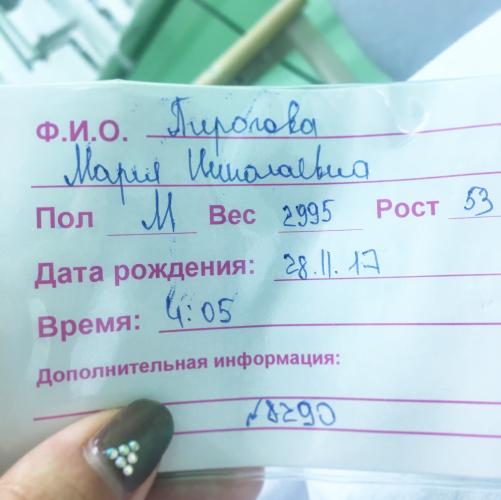 Ф.И.О. Пирогова
Мария Николаевна
Пол М Вес 2995 Рост 53
Дата рождения: 28.11.17
Время: 4:05
Дополнительная информация: